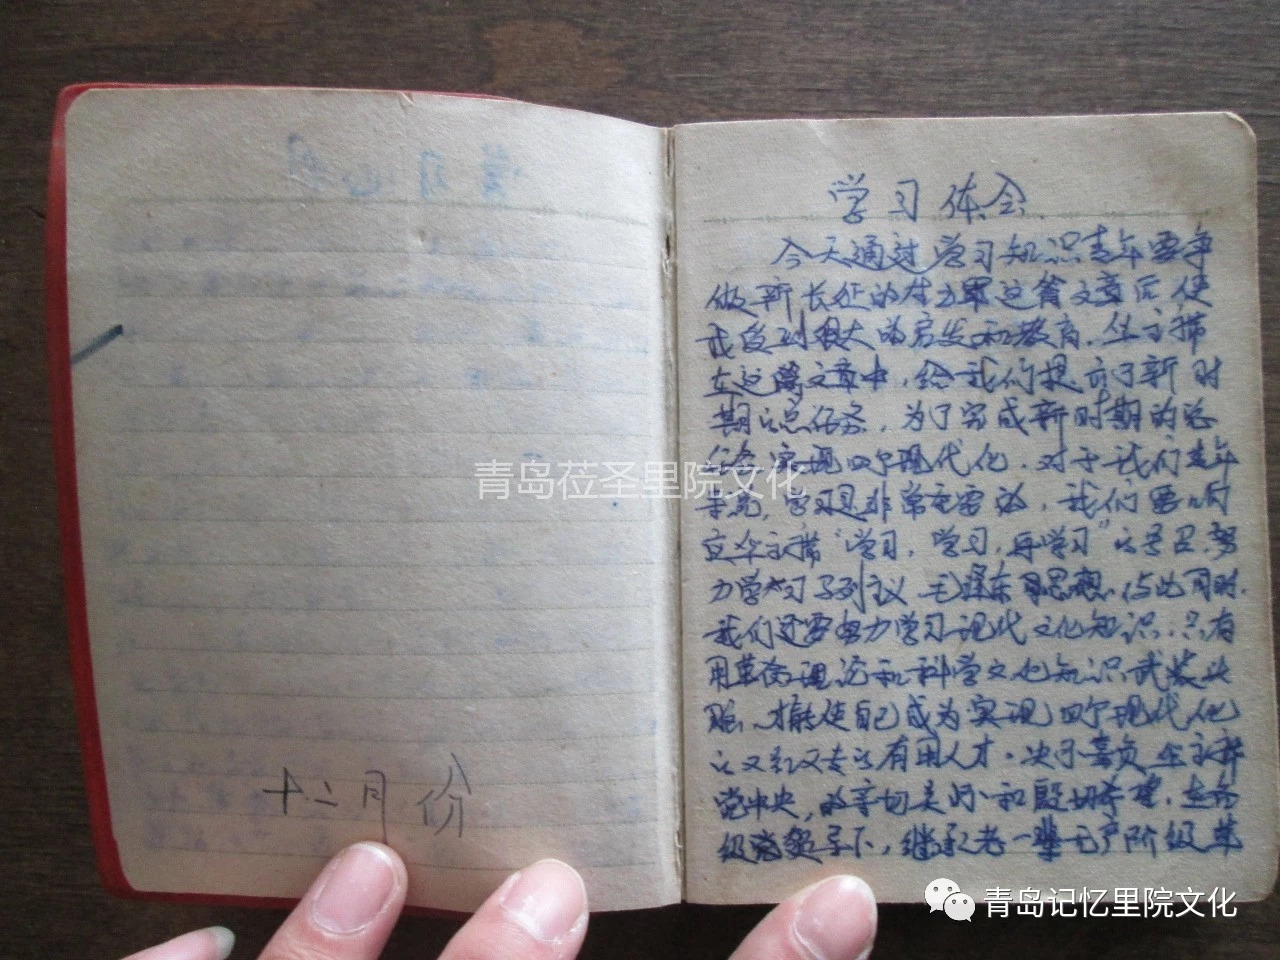 十二月份
学习体会
今天通过学习知识青年要争
做新长征的生力军这篇文章后使
我受到很大的启发和教育。华主席
在这篇文章中，给我们提前了新时
期的总任务，为了完成新时期的总
任务实现四个现代化，对于我们青年
来说，学习是非常重要的，我们要响
应华主席“学习，学习，再学习”的号召，努
力学习马列主义毛泽东思想，与此同时，
我们还要努力学习现代文化知识，只有
用革命理论和科学文化知识武装头
脑，才能使自己成为实现四个现代化
的又红又专的有用人才。决不辜负华主席
党中央，的亲切关怀和殷切希望，在各
级党领导下，继承老一辈无产阶级革
青岛莅圣里院文化
青岛记忆里院文化